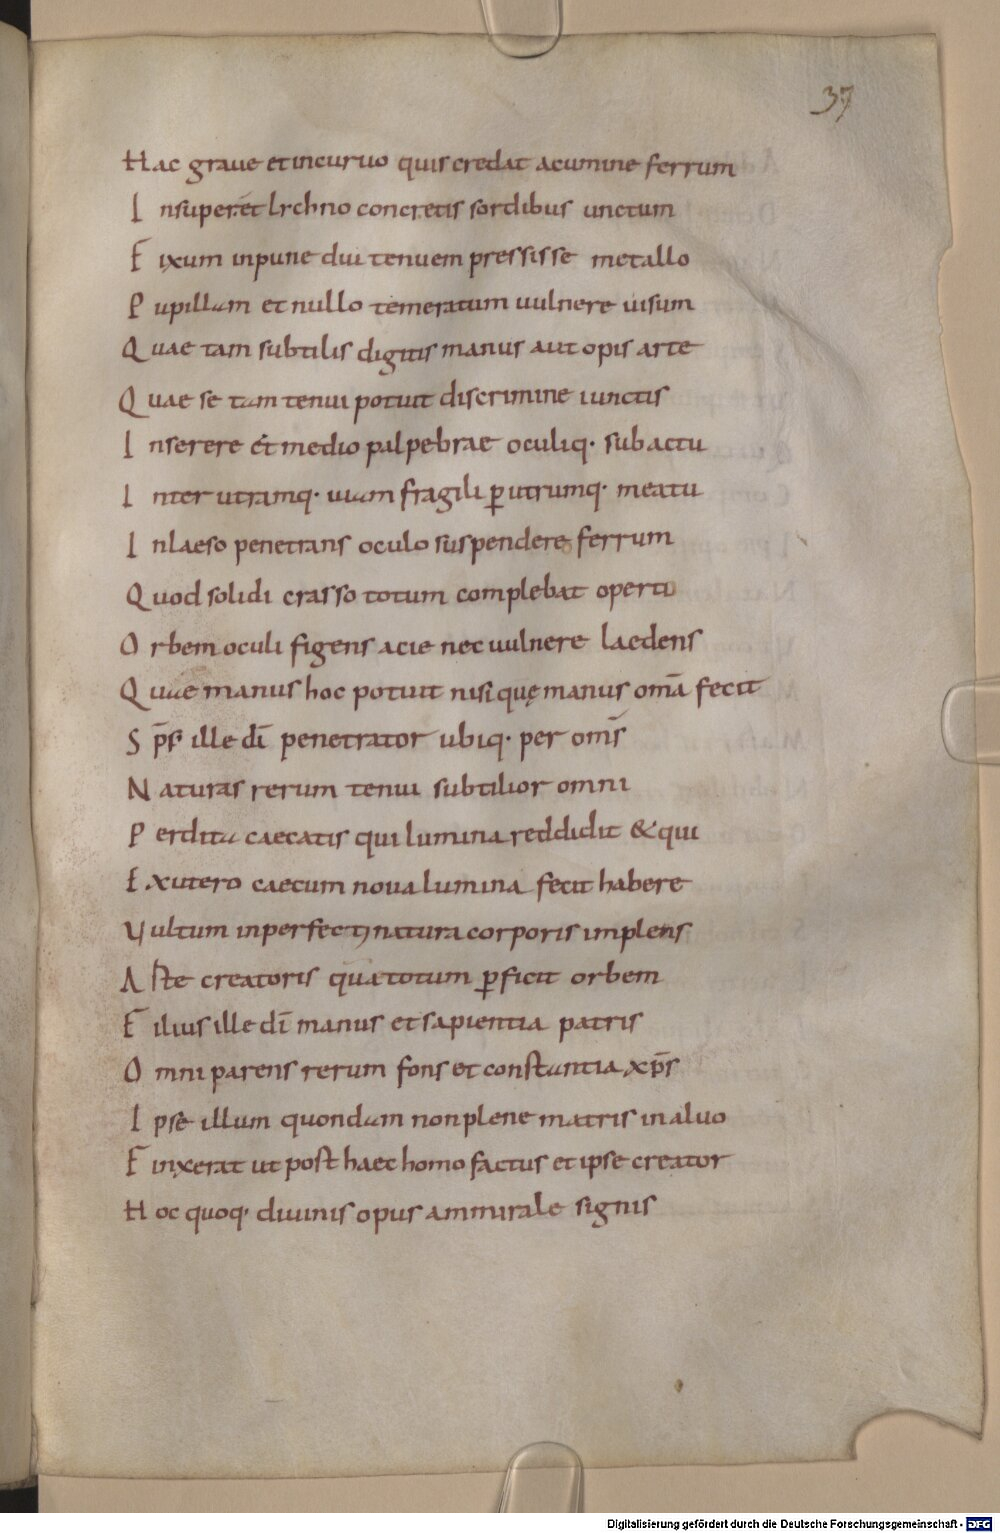 37
Hac graue et incuruo quis credat acumine ferrum
Insuper et lrchno concretis sordibus unctum
Fixum inpune diu tenuem pressisse metallo
Pupillam et nullo temeratum uulnere uisum
Quae tam subtilis digitis manus aut opis arte
Quae se tam tenui potuit discrimine iunctis
Inserere et medio palpebrae oculiq· sub actu
Inter utramq· uiam fragili p̱ utrumq· meatu
Inlaeso penetrans oculo suspendere ferrum
Quod solidi crasso totum complebat operto
Orbem oculi figens acie nec uulnere laedens
Quae manus hoc potuit nisi quę manus om̄a fecit
Sp̄s ille dī penetrator ubiq· per om̄s
Naturas rerum tenui subtilior omni
Perdita caecatis qui lumina reddidit & qui
Ex utero caecum noua lumina fecit habere
Vultum inperfecti natura corporis implens
Arte creatoris qua totum p̱ficit orbem
Filius ille dī manus et sapientia patris
Omniparens rerum fons et constantia xp̄s
Ipse illum quondam non plene matris in aluo
Finxerat ut post haec homo factus et ipse creator
Hoc quoq· diuinis opus ammirale signis
Digitalisierung gefördert durch die Deutsche Forschungsgemeinschaft - DFG